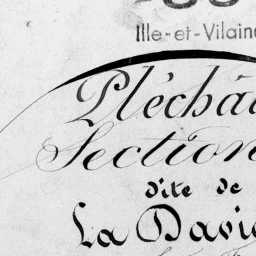 Ille-et-Vilain
Pléchâ
Section
dite de
La Davi